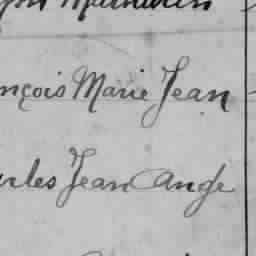 nçois Marie Jean
rles Jean Ange